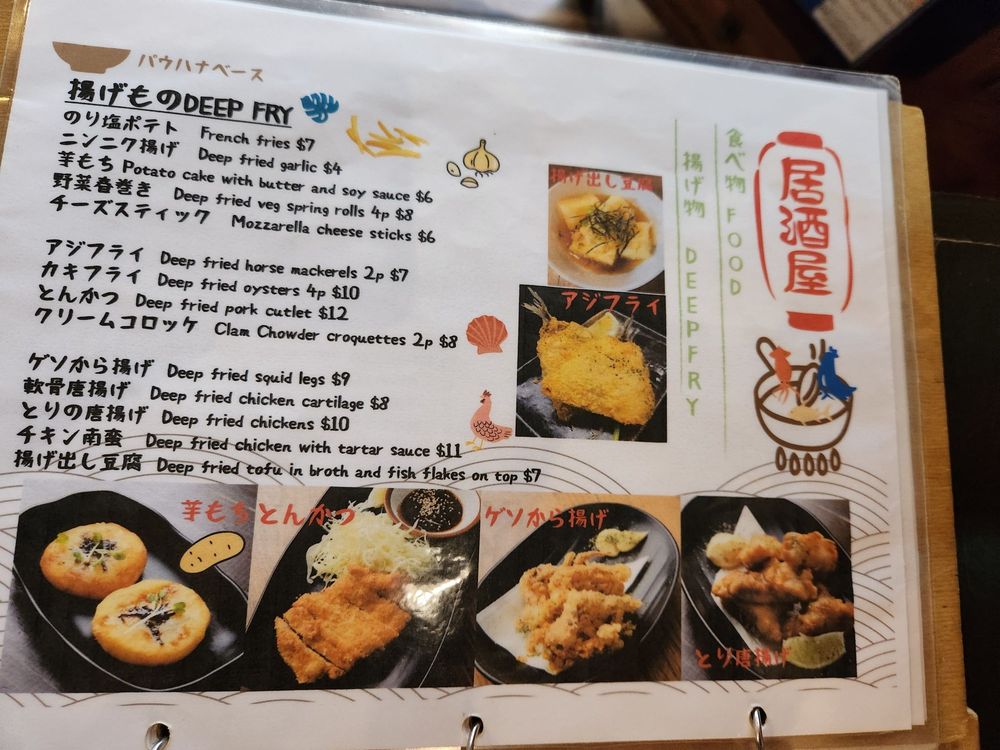 パウハナベース
揚げものDEEP FRY
のり塩ポテト French fries $7
ニンニク揚げ Deep fried garlic $4
芋もち Potato cake with butter and soy sauce $6
野菜春巻き Deep fried veg spring rolls 4p $8
チーズスティック Mozzarella cheese sticks $6
アジフライ Deep fried horse mackerels 2p $7
カキフライ Deep fried oysters 4p $10
とんかつ Deep fried pork cutlet $12
クリームコロッケ Clam Chowder croquettes 2p $8
ゲソから揚げ Deep fried squid legs $9
軟骨唐揚げ Deep fried chicken cartilage $8
とりの唐揚げ Deep fried chickens $10
チキン南蛮 Deep fried chicken with tartar sauce $11
揚げ出し豆腐 Deep fried tofu in broth and fish flakes on top $7
揚げ出し豆腐
アジフライ
揚げ物 DEEPFRY
食べ物 FOOD
居酒屋
芋もち
とんかつ
ゲソから揚げ
とり唐揚げ